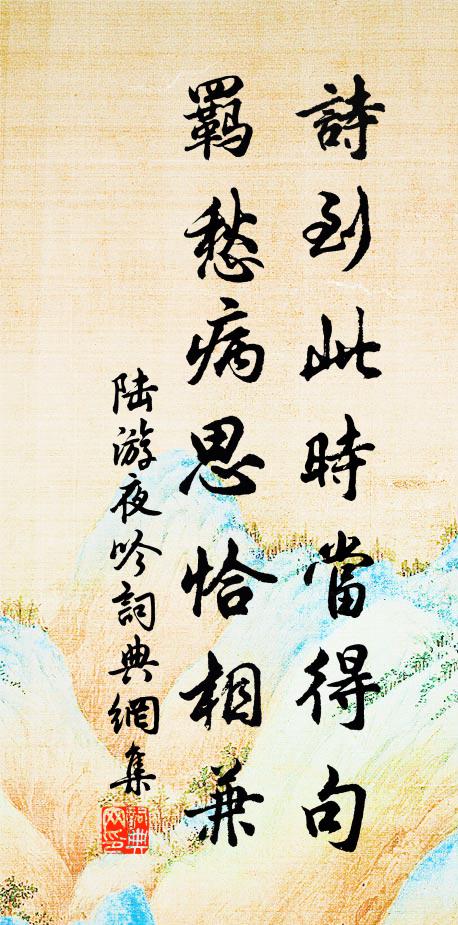 詩到此時當得句
羈愁病思恰相兼
陸游夜吟詞典網集
詞典